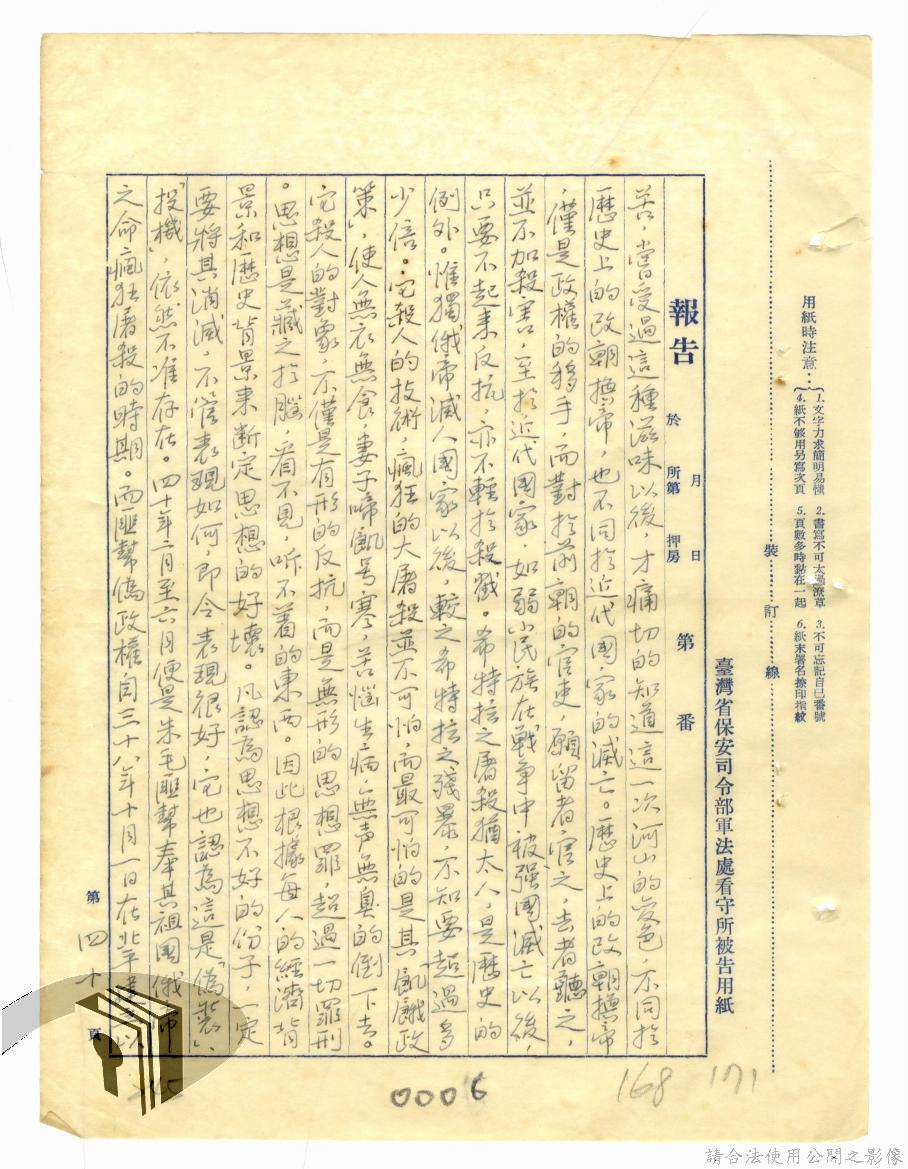 用紙時注意：
1.文字力求簡明易懂　2.書寫不可太過潦草　3.不可忘記自己番號
4.紙不够用另寫次頁　5.頁數多時黏在一起　6.紙末署名捺印指紋
裝訂線
臺灣省保安司令部軍法處看守所被告用紙
報告　於　月　日　所第　押房　第　番
苦，嘗受過這種滋味以後，才痛切的知道這一次河山的變色，不同於
歷史上的改朝換帝，也不同於近代國家的滅亡。歷史上的改朝換帝
，僅是政權的移手，而對於前朝的官吏，願留者官之，去者聽之，
並不加殺害，至於近代國家，如弱小民族在戰爭中被强國滅亡以後，
只要不起來反抗，亦不輕於殺戮。希特拉之屠殺猶太人，是歷史的
例外。惟獨俄帝滅人國家以後，較之希特拉之殘暴，不知要超過多
少倍。它殺人的技術，瘋狂的大屠殺並不可怕，而最可怕的是其飢餓政
策」，使人無衣無食，妻子啼飢号寒，苦惱生病，無声無臭的倒下去。
它殺人的對象，不僅是有形的反抗，而是無形的思想罪，超過一切罪刑
。思想是藏之於腦，看不見，听不着的東西。因此根據每人的經濟背
景和歷史背景來斷定思想的好壞。凡認為思想不好的份子，一定
要將其消滅，不管表現如何，即令表現很好，它也認為這是「偽裝」、
「投機」，依然不准存在。四十年二月至六月便是朱毛匪幫奉其祖國俄帝
之命瘋狂屠殺的時期。而匪幫偽政權自三十八年十月一日在北平建立以
第四十頁
0006
168
171
請合法使用公開之影像